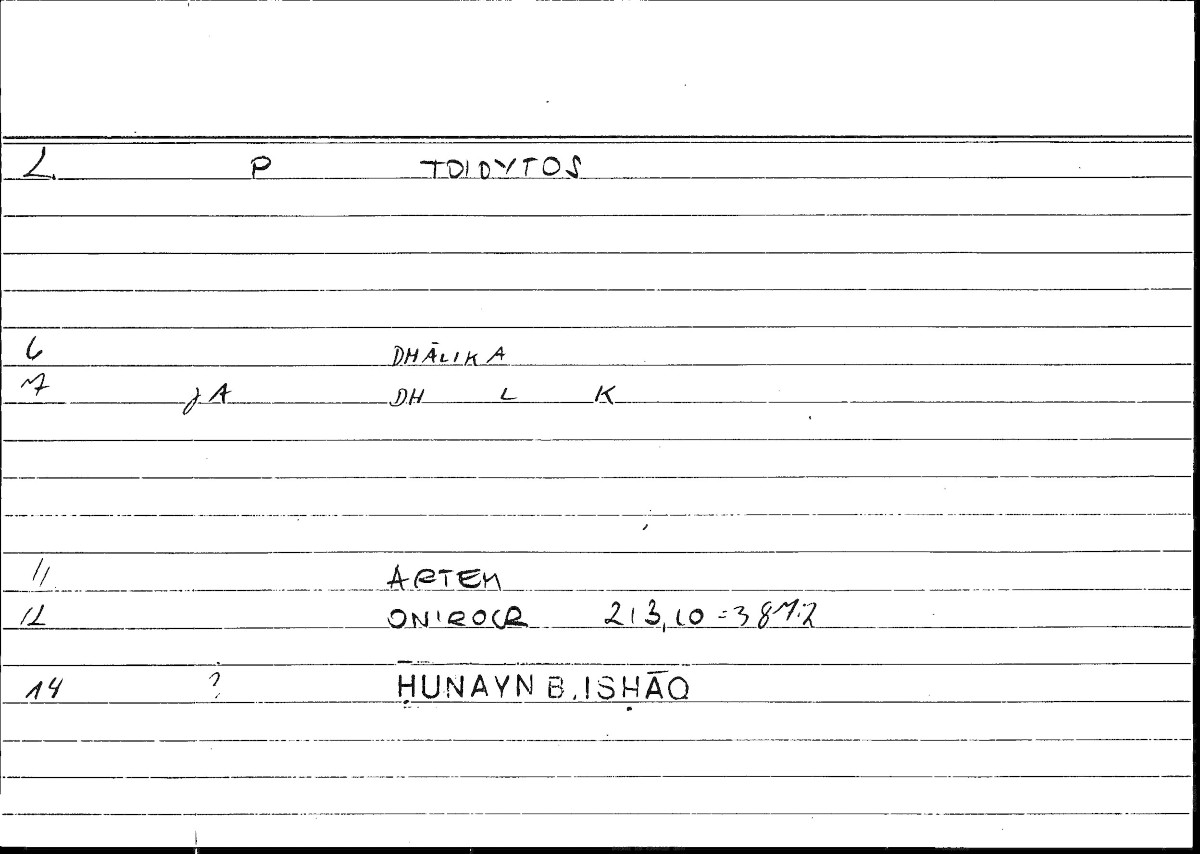 2. P TOIOYTOS
6 DHĀLIKA
7 jA DH L K
11 ARTEM
12 ONIROCR 213,10 = 387.2
14 ? ḤUNAYN B. ISḤĀQ